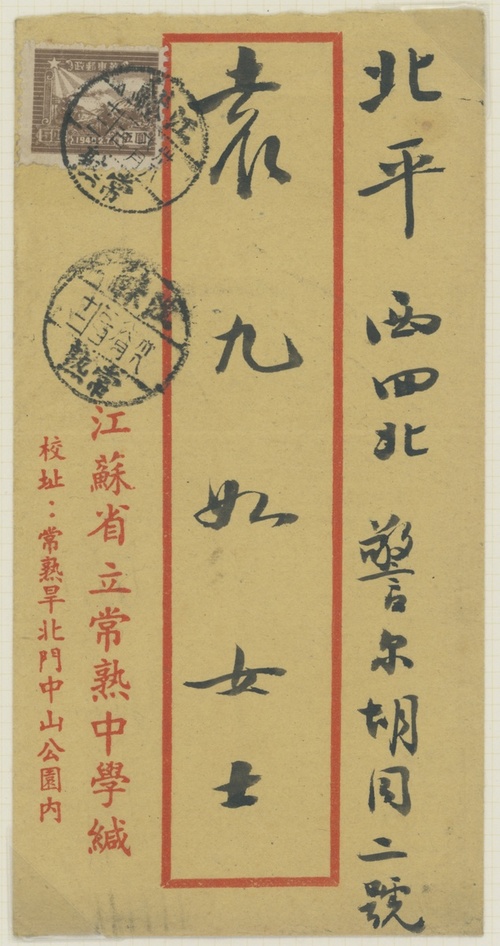 北平 西四北 警尔胡同二號
袁九如女士
江蘇省立常熟中學緘
校址：常熟旱北門中山公園内
江蘇
常熟
江蘇
常熟